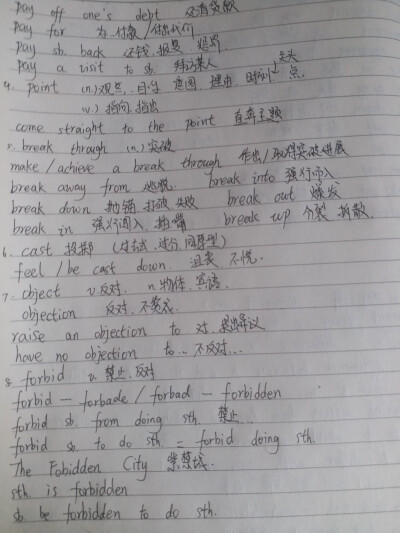 pay off one's dept 还清贷款
pay for 为..付款/付出代价
pay sb. back 还钱.报复
pay a visit to sb. 拜访某人
4. point (n.)观点. 目的 意图. 理由 时间/点.
(v.) 指向.指出
come straight to the point 直奔主题
5. break through (n.)突破
make/achieve a break through 作出/取得突破进展
break away from break into 强行闯入
break down 抛锚 打破 失败 break out 爆发
break in 强行闯入. 插嘴 break up 分裂 拆散.
6. cast 投掷 (过去式.过分.同原型)
feel/be cast down. 沮丧 不悦.
7. object v.反对. n.物体. 宾语.
objection 反对.不赞成.
raise an objection to 对..提出异议
have no objection to... 不反对...
8. forbid v. 禁止.反对
forbid - forbade/forbad - forbidden
forbid sb from doing sth. 禁止...
forbid sb. to do sth = forbid doing sth.
The Fobidden City 紫禁城.
sth. is forbidden
sb be forbidden to do sth.